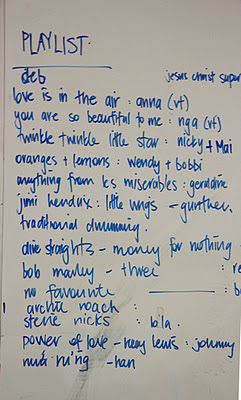 PLAYLIST.
deb
jesus christ super
love is in the air : anna (vt)
you are so beautiful to me : nga (vt)
twinkle twinkle little star : nicky + Mai
oranges + lemons : wendy + bobbi
anything from les miserables : geraldine
jimi hendrix : little wings - gunther.
traditional drumming.
dire straights - money for nothing
bob marley - three : re
no favourite : b
archie roach :
stevie nicks : lola.
power of love - huey lewis : johnny
-han